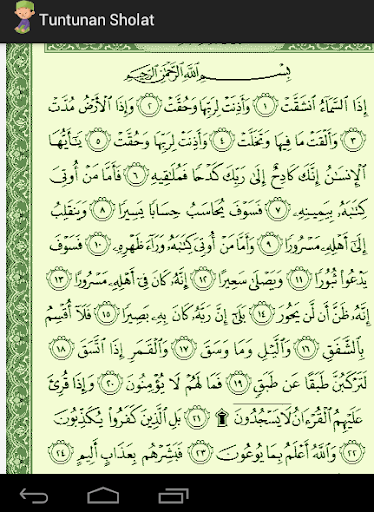 Tuntunan Sholat
بِسْمِ ٱللَّهِ ٱلرَّحْمَٰنِ ٱلرَّحِيمِ
إِذَا ٱلسَّمَآءُ ٱنشَقَّتْ ۝١ وَأَذِنَتْ لِرَبِّهَا وَحُقَّتْ ۝٢ وَإِذَا ٱلْأَرْضُ مُدَّتْ
۝٣ وَأَلْقَتْ مَا فِيهَا وَتَخَلَّتْ ۝٤ وَأَذِنَتْ لِرَبِّهَا وَحُقَّتْ ۝٥ يَٰٓأَيُّهَا
ٱلْإِنسَٰنُ إِنَّكَ كَادِحٌ إِلَىٰ رَبِّكَ كَدْحًا فَمُلَٰقِيهِ ۝٦ فَأَمَّا مَنْ أُوتِىَ
كِتَٰبَهُۥ بِيَمِينِهِۦ ۝٧ فَسَوْفَ يُحَاسَبُ حِسَابًا يَسِيرًا ۝٨ وَيَنقَلِبُ
إِلَىٰٓ أَهْلِهِۦ مَسْرُورًا ۝٩ وَأَمَّا مَنْ أُوتِىَ كِتَٰبَهُۥ وَرَآءَ ظَهْرِهِۦ ۝١٠ فَسَوْفَ
يَدْعُوا۟ ثُبُورًا ۝١١ وَيَصْلَىٰ سَعِيرًا ۝١٢ إِنَّهُۥ كَانَ فِىٓ أَهْلِهِۦ مَسْرُورًا ۝١٣
إِنَّهُۥ ظَنَّ أَن لَّن يَحُورَ ۝١٤ بَلَىٰٓ إِنَّ رَبَّهُۥ كَانَ بِهِۦ بَصِيرًا ۝١٥ فَلَآ أُقْسِمُ
بِٱلشَّفَقِ ۝١٦ وَٱلَّيْلِ وَمَا وَسَقَ ۝١٧ وَٱلْقَمَرِ إِذَا ٱتَّسَقَ ۝١٨
لَتَرْكَبُنَّ طَبَقًا عَن طَبَقٍ ۝١٩ فَمَا لَهُمْ لَا يُؤْمِنُونَ ۝٢٠ وَإِذَا قُرِئَ
عَلَيْهِمُ ٱلْقُرْءَانُ لَا يَسْجُدُونَ ۩ ۝٢١ بَلِ ٱلَّذِينَ كَفَرُوا۟ يُكَذِّبُونَ
۝٢٢ وَٱللَّهُ أَعْلَمُ بِمَا يُوعُونَ ۝٢٣ فَبَشِّرْهُم بِعَذَابٍ أَلِيمٍ ۝٢٤